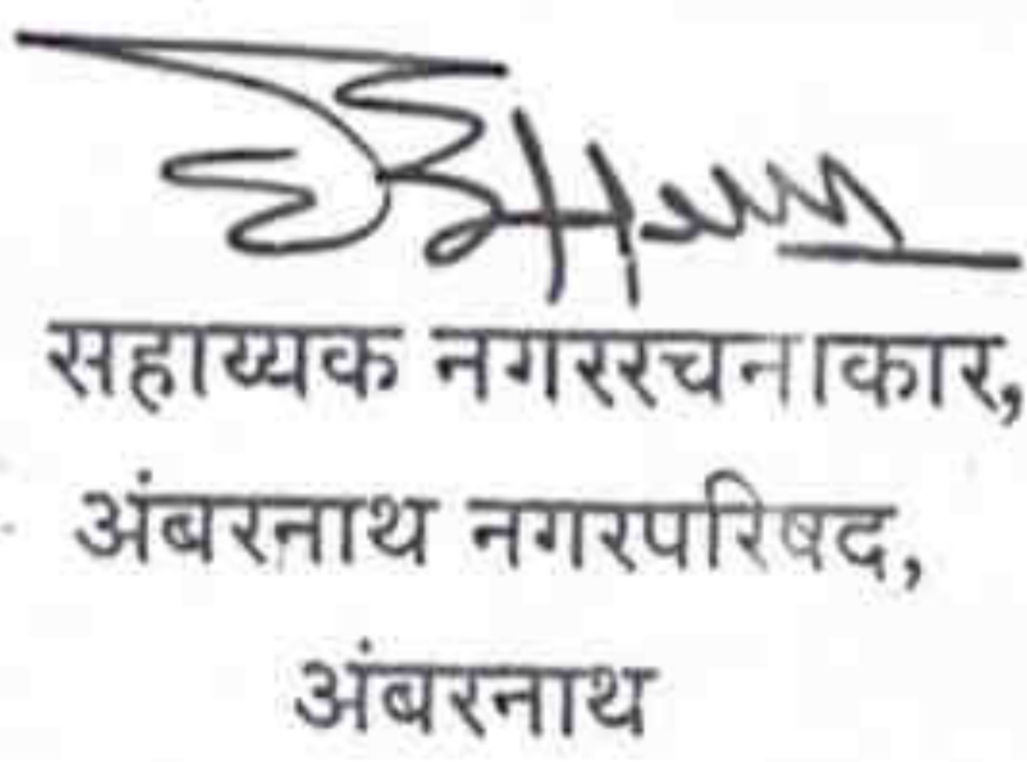 सहाय्यक नगररचनाकार,
अंबरनाथ नगरपरिषद,
अंबरनाथ